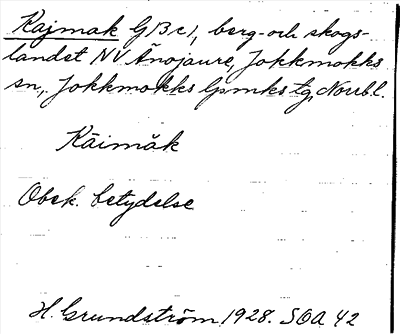 Kajmak G 13 c 1, berg- och skogs-
landet NV Änojaure, Jokkmokks
sn, Jokkmokks lpmks tg, Norrb. l.
Käimǎk
Obek. betydelse
H. Grundström 1928. SOA 42